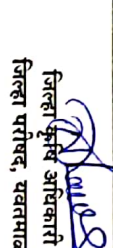 जिल्हा कृषि अधिकारी
जिल्हा परिषद, यवतमाळ